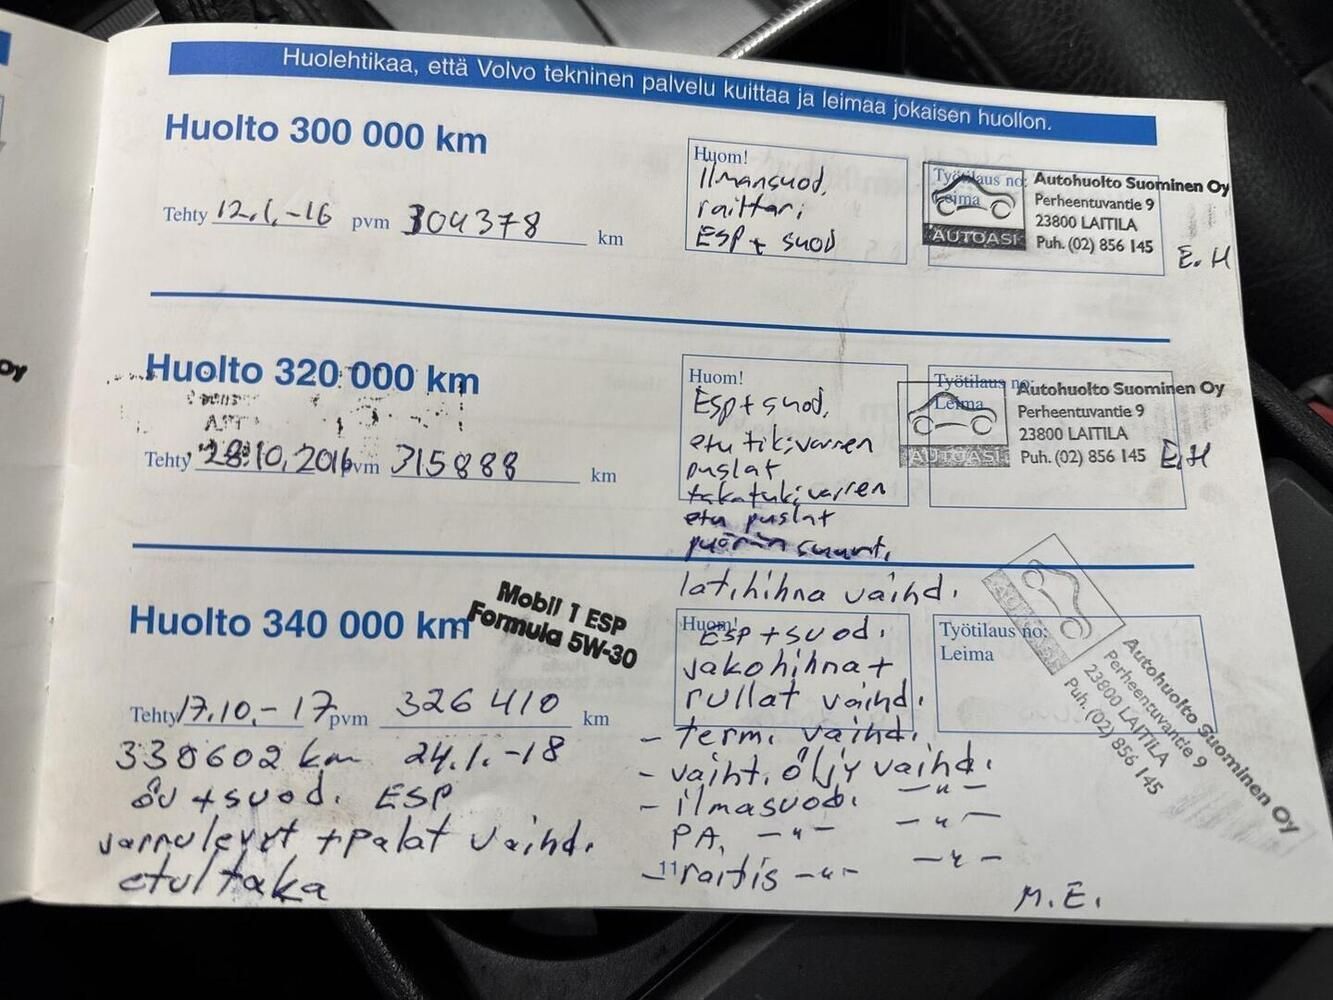 Huolehtikaa, että Volvo tekninen palvelu kuittaa ja leimaa jokaisen huollon.
Huolto 300 000 km
Tehty 12.1.-16 pvm 304378 km
Huom!
Ilmansuod,
raittari
ESP + suod
Työtilaus no:
Leima
AUTOASI
Autohuolto Suominen Oy
Perheentuvantie 9
23800 LAITILA
Puh. (02) 856 145
E.H
Huolto 320 000 km
Tehty 28.10.2016 pvm 315888 km
Huom!
Esp + suod,
etu tukivarren
puslat
takatukivarren
etu puslat
puöran suunt.
Työtilaus no:
Leima
AUTOASI
Autohuolto Suominen Oy
Perheentuvantie 9
23800 LAITILA
Puh. (02) 856 145
E.H
Huolto 340 000 km
Mobil 1 ESP
Formula 5W-30
Tehty 17.10.-17 pvm 326410 km
330602 km 24.1.-18
öv + suod. ESP
jarrulevyt + palat vaihd.
etu/taka
lat.hihna vaihd.
Huom!
ESP + suod.
jakohihna +
rullat vaihd.
- term. vaihd.
- vaiht. öljy vaihd.
- ilmasuod. -"-
PA. -"- -"-
- raitis -"- -"-
Työtilaus no:
Leima
AUTOASI
Autohuolto Suominen Oy
Perheentuvantie 9
23800 LAITILA
Puh. (02) 856 145
M.E.
11
Oy